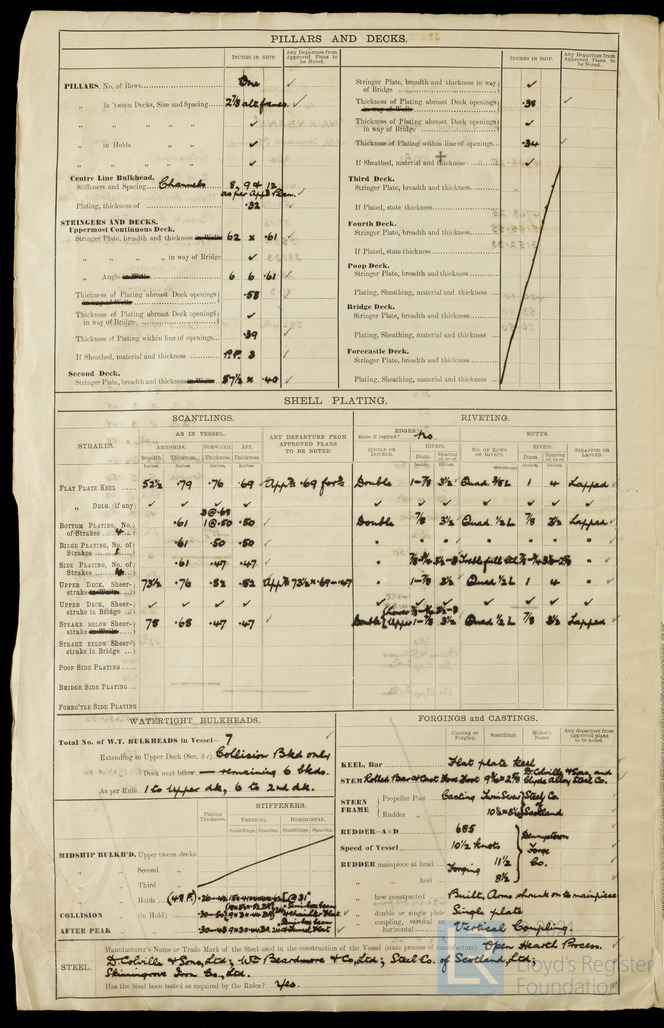 PILLARS AND DECKS.
INCHES IN SHIP.
Any Departure from Approved Plans to be Noted.
PILLARS, No. of Rows
One
„ in 'tween Decks, Size and Spacing
2 7/8 alt frames.
„ „ „ „
„ in Holds „
„ „ „
Centre Line Bulkhead.
Stiffeners and Spacing Channels
8, 9 & 12
as per App'd Plan.
Plating, thickness of
.32
STRINGERS AND DECKS.
Uppermost Continuous Deck.
Stringer Plate, breadth and thickness in Wells
62 x .61
„ „ „ „ in way of Bridge
„ Angle in Wells
6 6 .61
Thickness of Plating abreast Deck openings in way of Wells
.58
Thickness of Plating abreast Deck openings in way of Bridge
Thickness of Plating within line of openings
.39
If Sheathed, material and thickness
P.P. 3
Second Deck.
Stringer Plate, breadth and thickness in Wells
57 1/2 x .40
INCHES IN SHIP.
Any Departure from Approved Plans to be Noted.
Stringer Plate, breadth and thickness in way of Bridge
Thickness of Plating abreast Deck openings in way of Wells
.38
Thickness of Plating abreast Deck openings in way of Bridge
Thickness of Plating within line of openings
.34
If Sheathed, material and thickness
Third Deck.
Stringer Plate, breadth and thickness
If Plated, state thickness
Fourth Deck.
Stringer Plate, breadth and thickness
If Plated, state thickness
Poop Deck.
Stringer Plate, breadth and thickness
Plating, Sheathing, material and thickness
Bridge Deck.
Stringer Plate, breadth and thickness
Plating, Sheathing, material and thickness
Forecastle Deck.
Stringer Plate, breadth and thickness
Plating, Sheathing, material and thickness
SHELL PLATING.
SCANTLINGS.
RIVETING.
STRAKES.
AS IN VESSEL.
AMIDSHIPS. FORWARD. AFT.
Breadth. Thickness. Thickness. Thickness.
Inches. Inches. Inches. Inches.
ANY DEPARTURE FROM APPROVED PLANS TO BE NOTED.
EDGES.
State if joggled? No.
SINGLE OR DOUBLE.
RIVETS.
Diam. Spacing cr. to cr.
BUTTS.
No. OF ROWS OF RIVETS.
RIVETS.
Diam. Spacing cr. to cr.
STRAPPED OR LAPPED.
FLAT PLATE KEEL 52 1/2 .79 .76 .69 App'd .69 for'd Double 1-7/8 3 1/2 1 4 Lapped
„ DBLG. (if any)
BOTTOM PLATING, No. of Strakes 4 .61 1@.50 .50 Double 7/8 3 1/2 Quad. 1/2 L 7/8 3 1/2 Lapped
BILGE PLATING, No. of Strakes 1 .61 .50 .50
SIDE PLATING, No. of Strakes 4 .61 .47 .47
UPPER DECK, Sheer-strake in Wells 73 1/2 .76 .52 .52 1-7/8 3 1/2 Quad 1/2 L 1 4
UPPER DECK, Sheer-strake in Bridge
STRAKE BELOW Sheer-strake in Wells 78 .68 .47 .47 Double Upper 1-7/8 3 1/2 Quad 1/2 L 7/8 3 1/2 Lapped
STRAKE BELOW Sheer-strake in Bridge
POOP SIDE PLATING
BRIDGE SIDE PLATING
FOREC'TLE SIDE PLATING
WATERTIGHT BULKHEADS.
Total No. of W.T. BULKHEADS in Vessel 7
Extending to Upper Deck (Sec. 3 c) Collision Bkd only
„ Deck next below — remaining 6 bkds.
As per Rule 1 to upper dk, 6 to 2nd dk.
Plating Thickness.
STIFFENERS.
VERTICAL. HORIZONTAL.
Scantlings. Spacing. Scantlings. Spacing.
MIDSHIP BULKH'D, Upper tween decks
„ Second „
„ Third „
„ Holds
COLLISION „ (in Hold)
AFTER PEAK „ „
FORGINGS and CASTINGS.
Casting or Forging.
Scantlings.
Maker's Name.
Any departure from approved plans to be noted.
KEEL, Bar Flat plate keel
STEM Rolled Bar & Cast Fore Foot D. Colville & Sons, and Clyde Alloy Steel Co.
STERN FRAME
Propeller Post Casting Steel Co. of Scotland
Rudder „
RUDDER—A×D 685
Speed of Vessel 10 1/2 knots
RUDDER mainpiece at head Forging 11 1/2
„ heel 8 1/2
Dennystown Forge Co.
„ how constructed Built, Arms shrunk on to mainpiece
„ double or single plate Single plate
„ coupling, vertical or horizontal Vertical Coupling.
STEEL.
Manufacturer's Name or Trade Mark of the Steel used in the construction of the Vessel (state process of manufacture) Open Hearth Process.
D. Colville & Sons, Ltd; Wm Beardmore & Co, Ltd; Steel Co. of Scotland, Ltd;
Skinningrove Iron Co., Ltd.
Has the Steel been tested as required by the Rules? Yes.
Lloyd's Register
Foundation